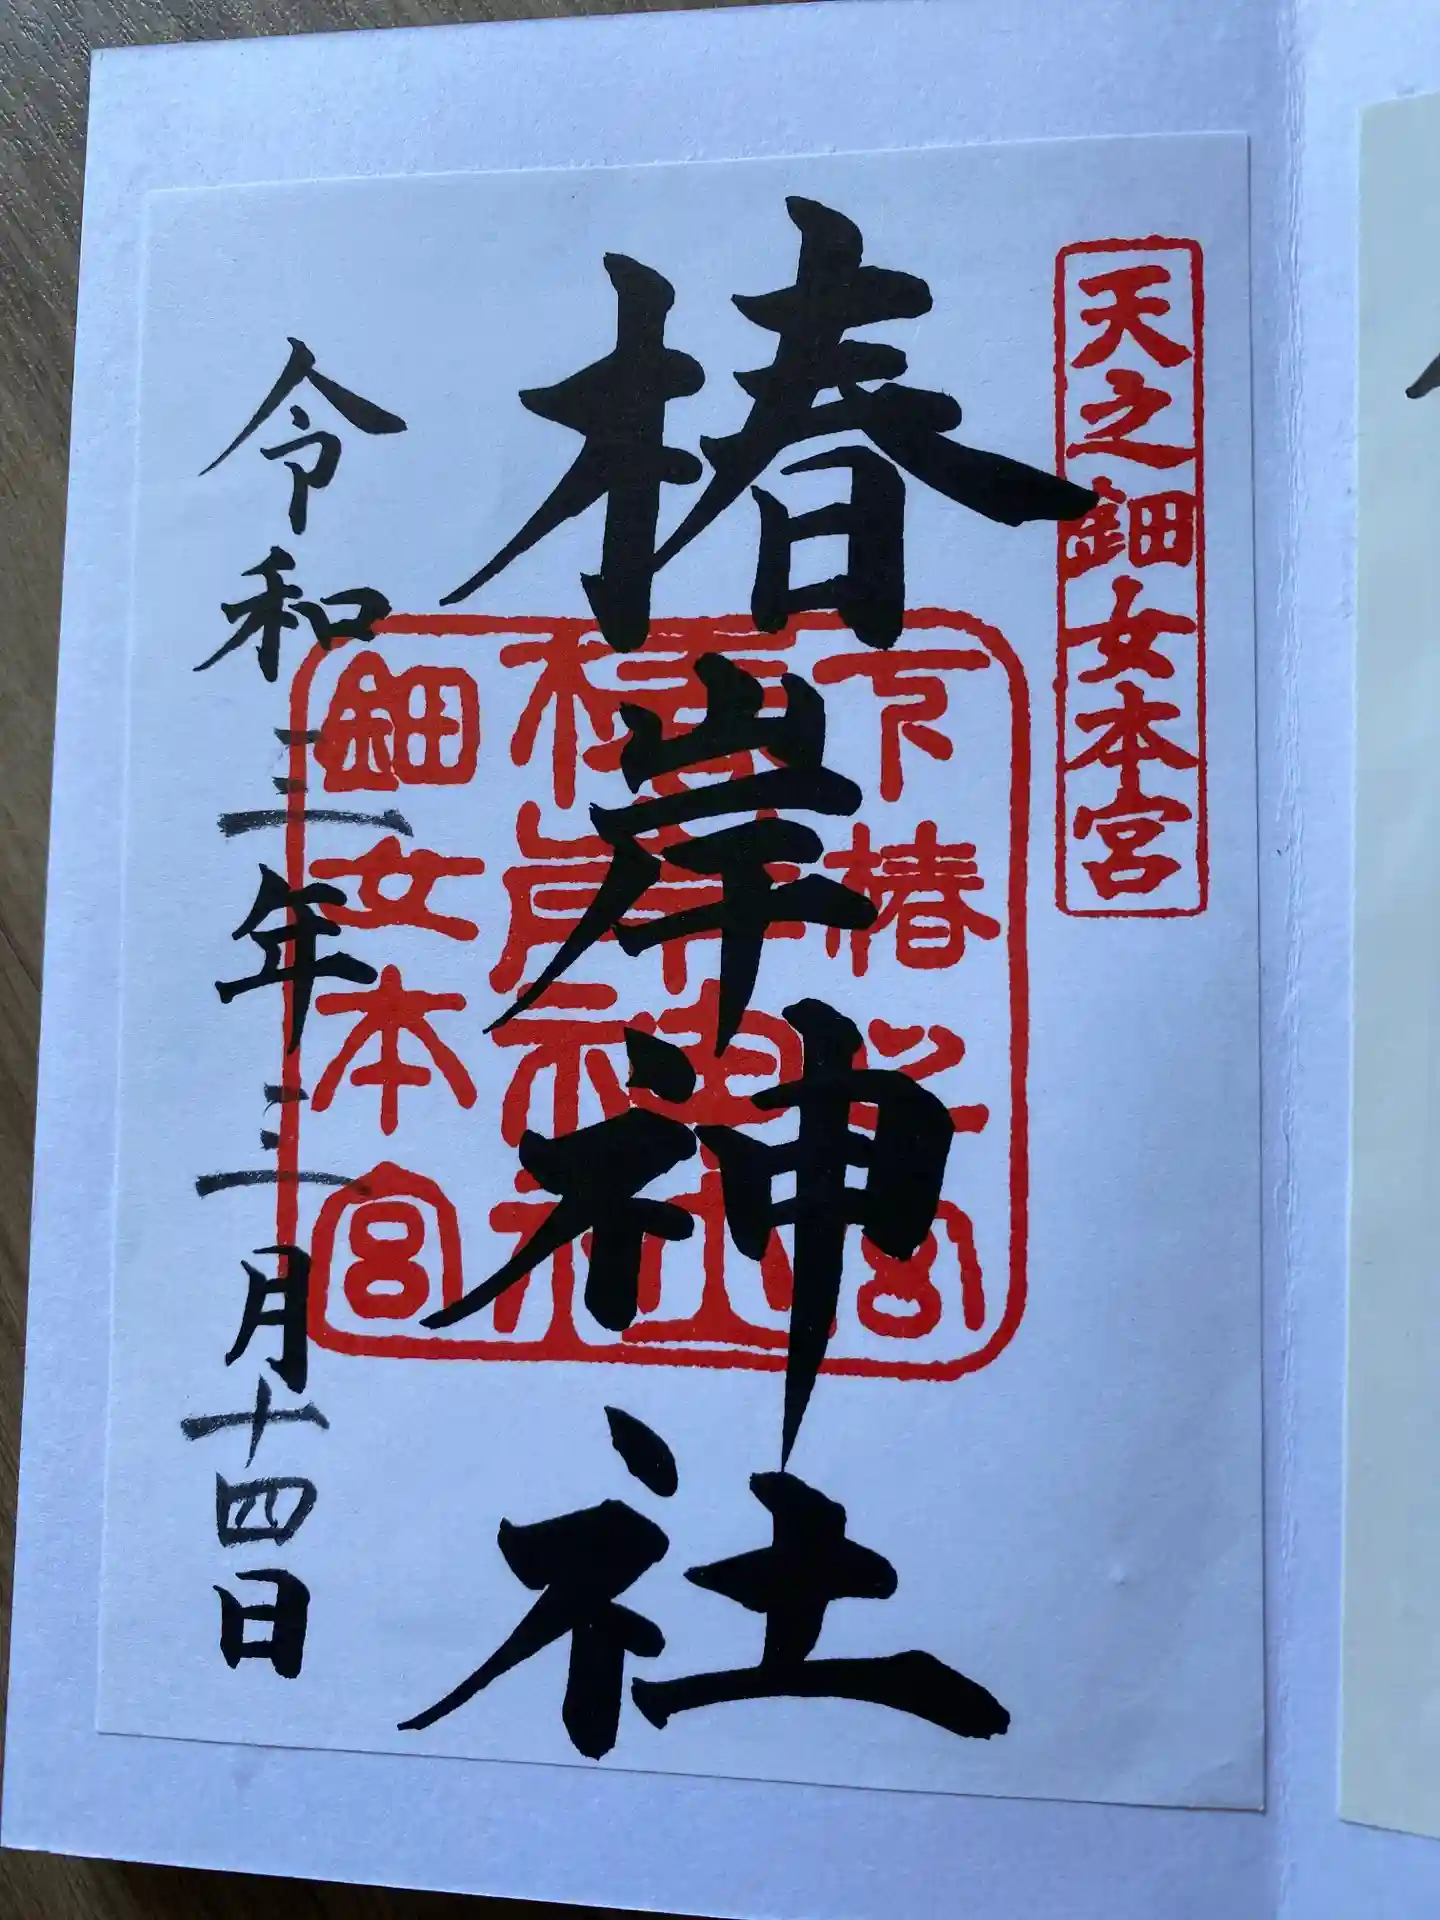 天之鈿女本宮
椿岸神社
下椿宮
椿岸神社
鈿女本宮
令和三年三月十四日